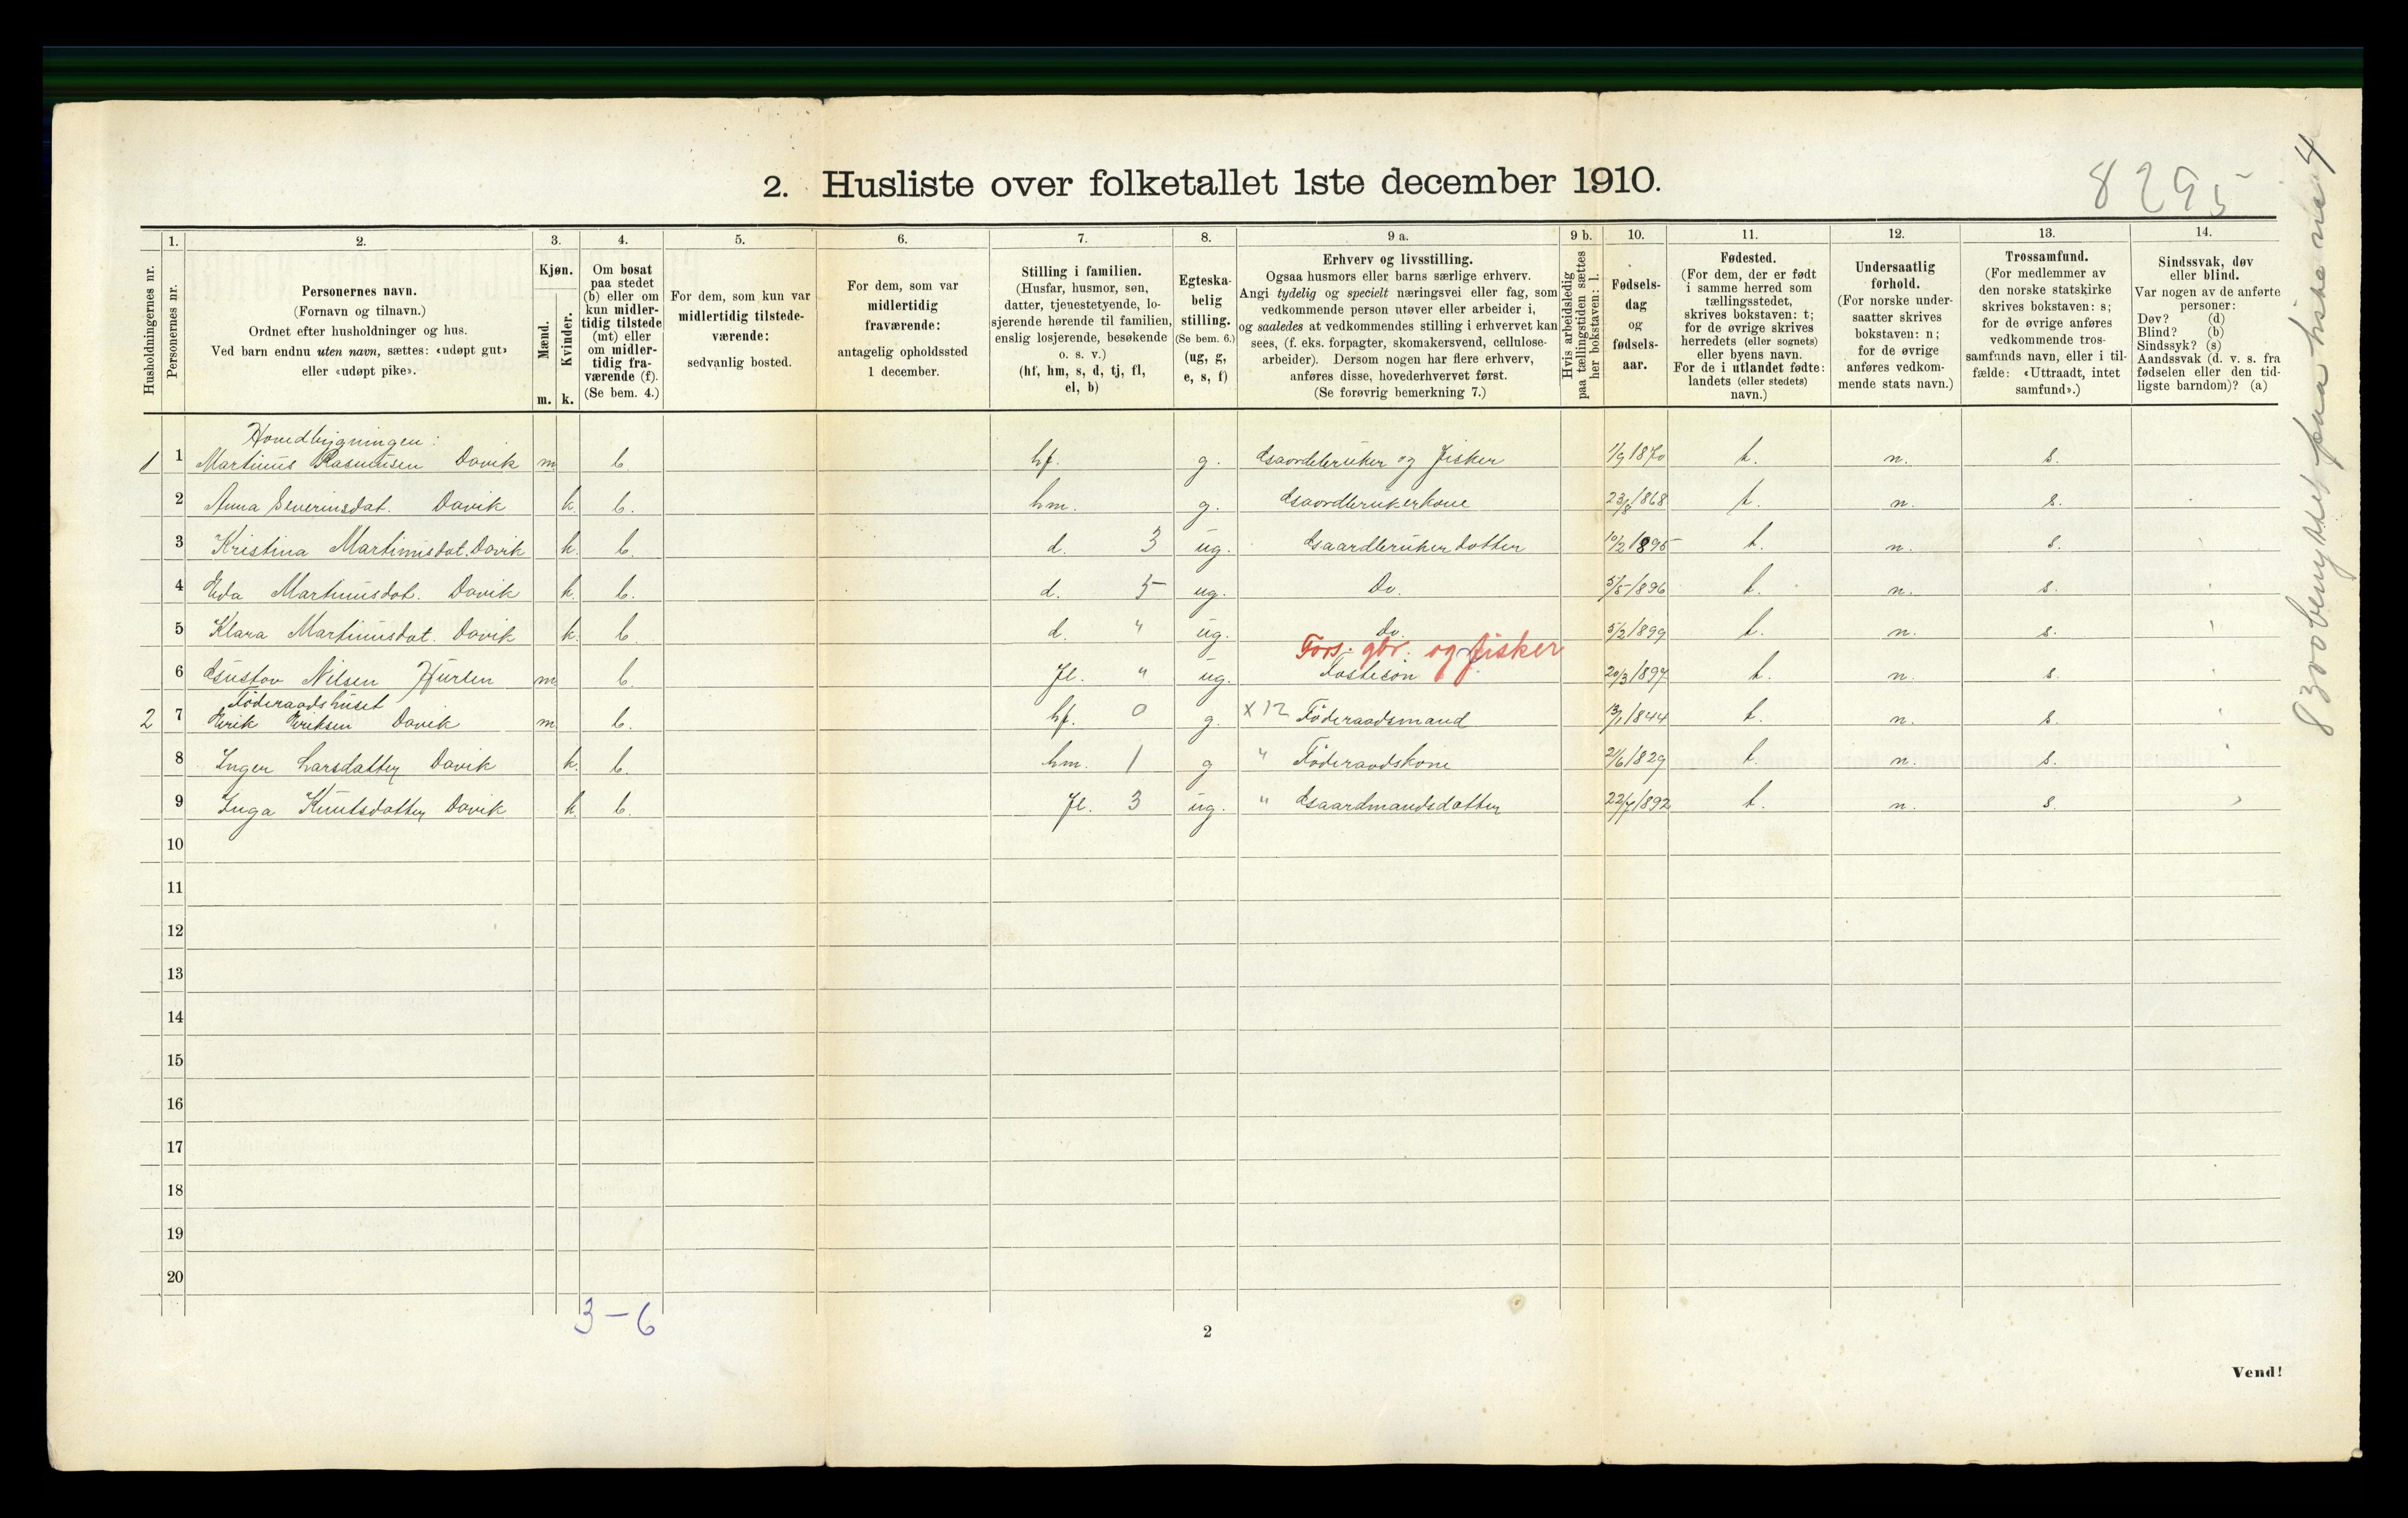 2. Husliste over folketallet 1ste december 1910.
8295
8300 benyttet paa liste nr 4
Husholdningernes nr.
1.
Personernes nr.
2.
Personernes navn.
(Fornavn og tilnavn.)
Ordnet efter husholdninger og hus.
Ved barn endnu uten navn, sættes: «udøpt gut»
eller «udøpt pike».
3.
Kjøn.
Mænd.
Kvinder.
m. k.
4.
Om bosat
paa stedet
(b) eller om
kun midler-
tidig tilstede
(mt) eller
om midler-
tidig fra-
værende (f).
(Se bem. 4.)
5.
For dem, som kun var
midlertidig tilstede-
værende:
sedvanlig bosted.
6.
For dem, som var
midlertidig
fraværende:
antagelig opholdssted
1 december.
7.
Stilling i familien.
(Husfar, husmor, søn,
datter, tjenestetyende, lo-
sjerende hørende til familien,
enslig losjerende, besøkende
o. s. v.)
(hf, hm, s, d, tj, fl,
el, b)
8.
Egteska-
belig
stilling.
(Se bem. 6.)
(ug, g,
e, s, f)
9 a.
Erhverv og livsstilling.
Ogsaa husmors eller barns særlige erhverv.
Angi tydelig og specielt næringsvei eller fag, som
vedkommende person utøver eller arbeider i,
og saaledes at vedkommendes stilling i erhvervet kan
sees, (f. eks. forpagter, skomakersvend, cellulose-
arbeider). Dersom nogen har flere erhverv,
anføres disse, hovederhvervet først.
(Se forøvrig bemerkning 7.)
9 b.
Hvis arbeidsledig
paa tællingstiden sættes
her bokstaven: l.
10.
Fødsels-
dag
og
fødsels-
aar.
11.
Fødested.
(For dem, der er født
i samme herred som
tællingsstedet,
skrives bokstaven: t;
for de øvrige skrives
herredets (eller sognets)
eller byens navn.
For de i utlandet fødte:
landets (eller stedets)
navn.)
12.
Undersaatlig
forhold.
(For norske under-
saatter skrives
bokstaven: n;
for de øvrige
anføres vedkom-
mende stats navn.)
13.
Trossamfund.
(For medlemmer av
den norske statskirke
skrives bokstaven: s;
for de øvrige anføres
vedkommende tros-
samfunds navn, eller i til-
fælde: «Uttraadt, intet
samfund».)
14.
Sindssvak, døv
eller blind.
Var nogen av de anførte
personer:
Døv? (d)
Blind? (b)
Sindssyk? (s)
Aandssvak (d. v. s. fra
fødselen eller den tid-
ligste barndom)? (a)
Hovedbygningen:
1 1 Martinus Rasmusen Davik m b. hf. g. Gaardbruker og fisker 1/9 1870 t. n. s.
2 Anna Severinsdat. Davik k. b. hm. g. Gaardbrukerkone 23/8 1868 t. n. s.
3 Kristina Martinusdat. Davik k. b. d. 3 ug. Gaardbruker dotter 10/2 1895 t. n. s.
4 Eda Martinusdat. Davik k. b. d. 5 ug. Do. 5/5 1896 t. n. s.
5 Klara Martinusdat. Davik k. b. d. " ug. Do. 5/2 1899 t. n. s.
Fors: gbr. og fisker
6 Gustav Nilsen m b. fl. " ug. Fostesøn 20/3 1897 t. n. s.
Föderaadshuset
2 7 Erik Eriksen Davik m b. hf. 0 g. x12 Föderaadsmand 13/1 1844 t. n. s.
8 Inger Larsdatter Davik k. b. hm. 1 g " Föderaadskone 21/6 1829 t. n. s.
9 Inga Knutsdatter Davik k b. fl. 3 ug. " Gaardmandsdatter 22/7 1892 t. n. s.
10
11
12
13
14
15
16
17
18
19
20
3-6
2
Vend!